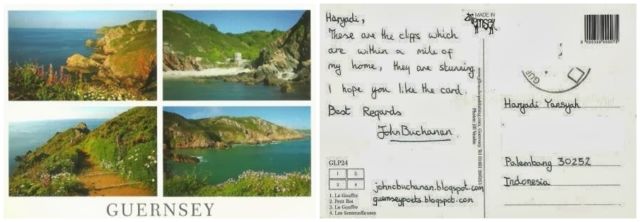 GUERNSEY
Haryadi,
These are the clifs which
are within a mile of
my home, they are stunning
I hope you like the card.
Best Regards
John Buchanan.
GLP24
1
2
3
4
1. Le Gouffre
2. Petit Bot
3. La Gouffre
johncbuchanan.blogspot.com
guernseypoets.blogspot.com
MADE IN
Haryadi Yansyah
Palembang 30252
Indonesia